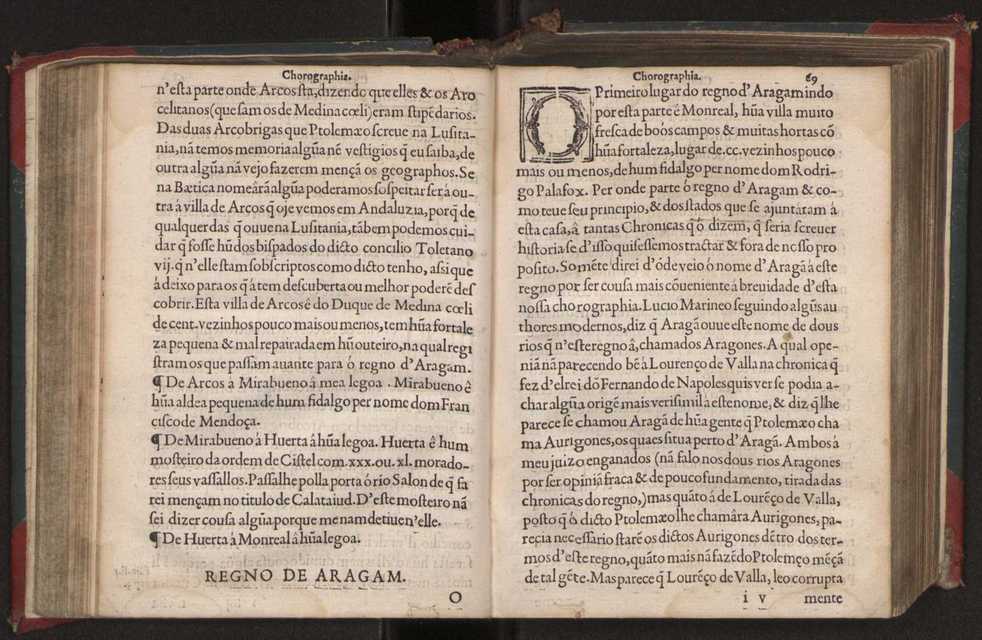 Chorographia.
n'esta parte onde Arcos sta, dizendo que elles & os Aro
celitanos (que sam os de Medina cœli) eram stipẽdarios.
Das duas Arcobrigas que Ptolemæo screue na Lusita-
nia, nã temos memoria algũa nẽ vestigios q̃ eu saiba, de
outra algũa nã vejo fazerem mençã os geographos. Se
na Bætica nomeárã algũa poderamos sospeitar ser á ou-
tra á villa de Arcos q̃ oje vemos em Andaluzia, porq̃ de
qualquer das q̃ ouue na Lusitania, tãbem podemos cui-
dar q̃ fosse hũ dos bispados do dicto concilio Toletano
vij. q̃ n'elle stam sobscriptos como dicto tenho, assi que
á deixo para os q̃ á tem descuberta ou melhor poderẽ des
cobrir. Esta villa de Arcos é do Duque de Medina cœli
de cent. vezinhos pouco mais ou menos, tem hũa fortale
za pequena & mal repairada em hũ outeiro, na qual regi
stram os que passam auante para ó regno d'Aragam.
¶ De Arcos á Mirabueno á mea legoa. Mirabueno ê
hũa aldea pequena de hum fidalgo per nome dom Fran
cisco de Mendoça.
¶ De Mirabueno á Huerta á hũa legoa. Huerta ê hum
mosteiro da ordem de Cistel com .xxx. ou. xl. morado-
res seus vassallos. Passalhe polla porta ó rio Salon de q̃ fa
rei mençam no titulo de Calataiud. D'este mosteiro nã
sei dizer cousa algũa porque me nam detiue n'elle.
¶ De Huerta á Monreal á hũa legoa.
REGNO DE ARAGAM.
O
Chorographia. 69
O Primeiro lugar do regno d'Aragam indo
por esta parte ê Monreal, hũa villa muito
fresca de boõs campos & muitas hortas cõ
hũa fortaleza, lugar de .cc. vezinhos pouco
mais ou menos, de hum fidalgo per nome dom Rodri-
go Palafox. Per onde parte ó regno d'Aragam & co-
mo teue seu principio, & dos stados que se ajuntáram á
esta casa, á tantas Chronicas q̃ ó dizem, q̃ seria screuer
historia se d'isso quisessemos tractar & fora de nosso pro
posito. Somẽte direi d'õde veio ó nome d'Aragã á este
regno por ser cousa mais cõueniente á breuidade d'esta
nossa chorographia. Lucio Marineo seguindo algũs au
thores modernos, diz q̃ Aragã ouue este nome de dous
rios q̃ n'este regno á, chamados Aragones. A qual ope-
niã nã parecendo bẽ á Lourenço de Valla na chronica q̃
fez d'elrei dõ Fernando de Napoles quis ver se podia a-
char algũa origẽ mais verisimil á este nome, & diz q̃ lhe
parece se chamou Aragã de hũa gente q̃ Ptolemæo cha
ma Aurigones, os quaes situa perto d'Aragã. Ambos á
meu juizo enganados (nã falo nos dous rios Aragones
por ser opiniã fraca & de pouco fundamento, tirada das
chronicas do regno,) mas quãto á de Lourẽço de Valla,
posto q̃ ó dicto Ptolemæo lhe chamâra Aurigones, pa-
recia necessario starẽ os dictos Aurigones dẽtro dos ter-
mos d'este regno, quãto mais nã fazẽdo Ptolemęo mẽçã
de tal gẽte. Mas parece q̃ Lourẽço de Valla, leo corrupta
i v mente